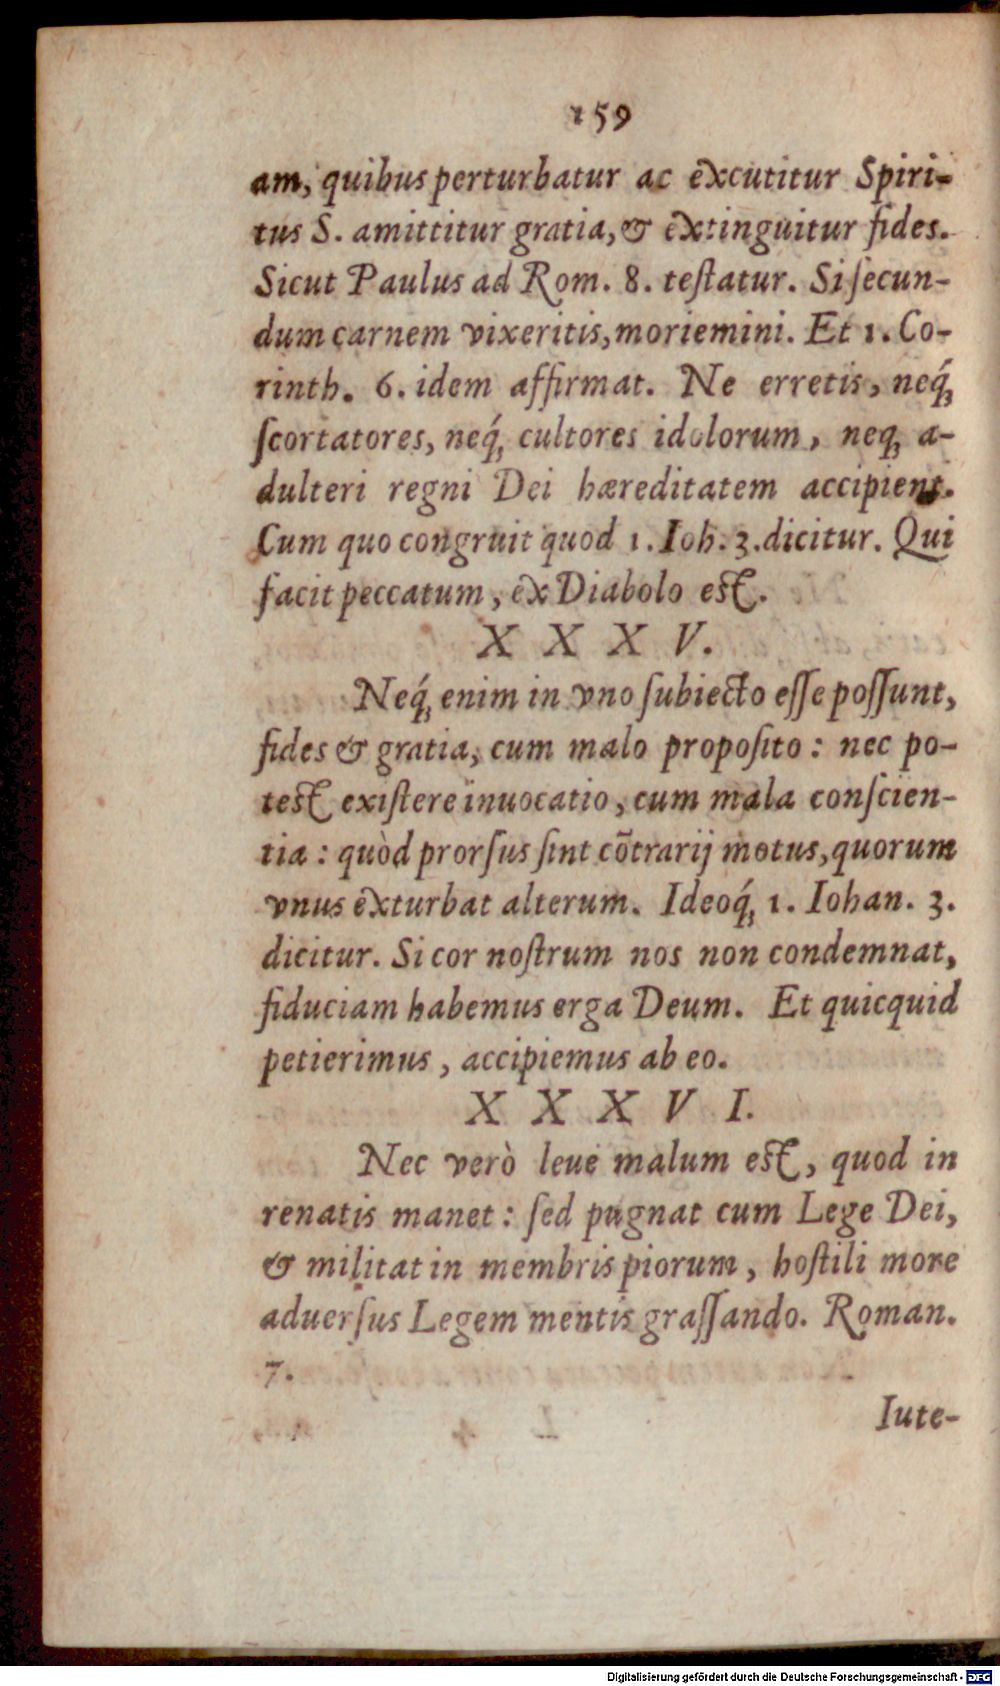 159
am, quibus perturbatur ac excutitur Spiri-
tus S. amittitur gratia, & extinguitur fides.
Sicut Paulus ad Rom. 8. testatur. Si ſecun-
dum carnem vixeritis, moriemini. Et 1. Co-
rinth. 6. idem affirmat. Ne erretis, neq́;
ſcortatores, neq́; cultores idolorum, neq; a-
dulteri regni Dei hæreditatem accipient.
Cum quo congruit quod 1. Ioh. 3. dicitur. Qui
facit peccatum, ex Diabolo est.
XXXV.
Neq́; enim in vno ſubiecto eſſe poſſunt,
fides & gratia, cum malo propoſito: nec po-
test exiſtere inuocatio, cum mala conſcien-
tia: quòd prorſus ſint cõtrarij motus, quorum
vnus exturbat alterum. Ideoq́; 1. Iohan. 3.
dicitur. Si cor noſtrum nos non condemnat,
fiduciam habemus erga Deum. Et quicquid
petierimus, accipiemus ab eo.
XXXVI.
Nec verò leue malum est, quod in
renatis manet: ſed pugnat cum Lege Dei,
& militat in membris piorum, hoſtili more
aduerſus Legem mentis graſſando. Roman.
7.
Iute-
Digitalisierung gefördert durch die Deutsche Forschungsgemeinschaft - DFG